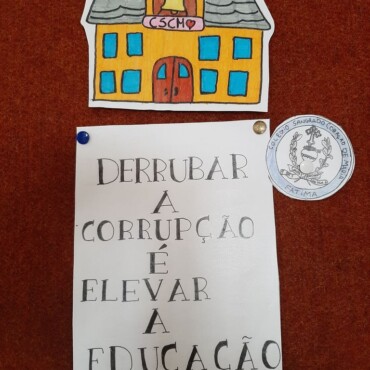 CSCM
DERRUBAR
A
CORRUPÇÃO
É
ELEVAR
A
EDUCAÇÃO
COLÉGIO SAGRADO CORAÇÃO DE MARIA
FÁTIMA